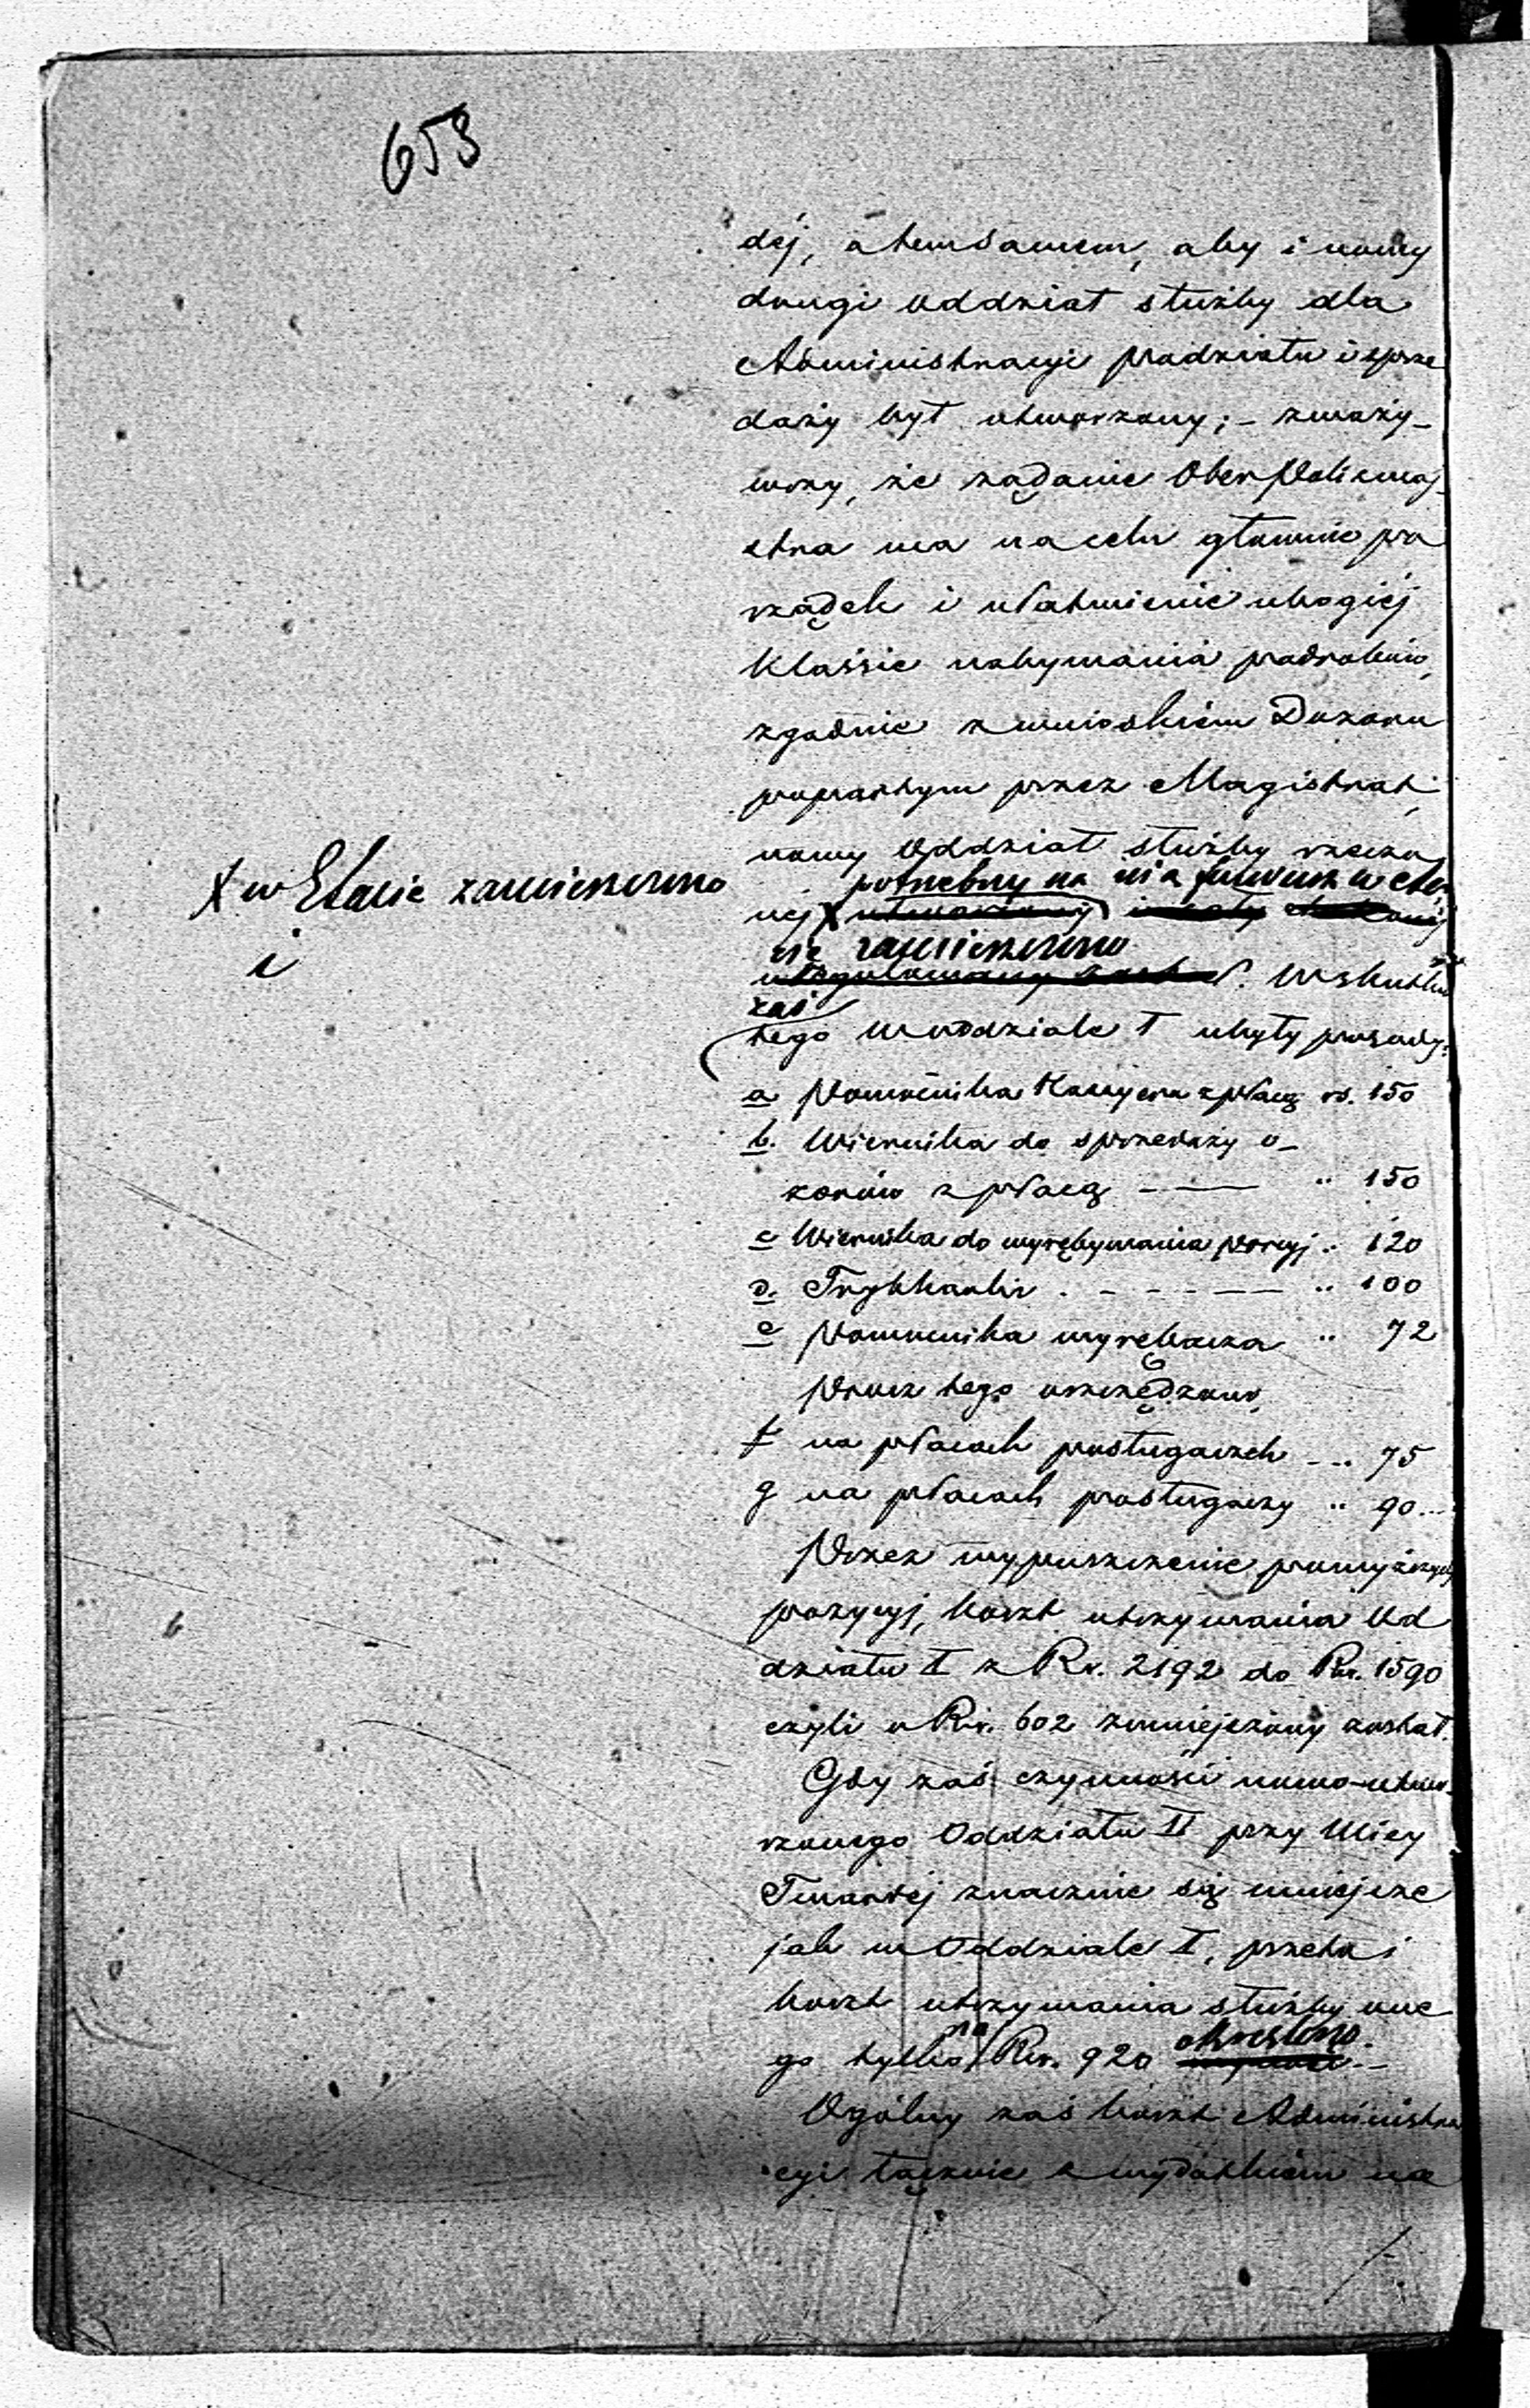 653
dej, a temsamem, aby i nowy
drugi Oddział służby dla
Administracyi podziału i sprze
daży był utworzony; - zważy-
wszy, że żądanie Ober Policmaj-
stra ma na celu głównie po
rządek i ułatwienie ubogiej
Klassie nabywania podrobów,
zgodnie z wnioskiem Dozoru
popartym przez Magistrat,
nowy Oddział służby rzeczo
potrzebny na nia fundusz w
nej X utworzony i
zamieszczono
uregulowany został. Wskutku
zaś
tego w oddziale I ubyły posady:
X w Etacie zamieszczono
i
a Pomocnika Kassyera z płacą rs. 150
b. Wiernika do sprzedaży o-
zorów z płacą ——— " 150
c Wiernika do wyrębywania porcyj " 120
d. Trybharbir . - - - — — " 100
e Pomocnika wyrębacza " 72
Prócz tego oszczędzono,
f na płacach posługaczek - .. 75
g na płacach posługaczy " 90 ..
Przez wypuszczenie powyższych
pozycyj, koszt utrzymania Od
działu I z Rs. 2192 do Rs. 1590
czyli o Rs. 602 zmniejszony został.
Gdy zaś czynności nowo-utwo-
rzonego Oddziału II przy Ulicy
Twardej znacznie są mniejsze
jak w Oddziale I, przeto i
koszt utrzymania służby one
go tylko na Rs. 920 określono.-
Ogólny zaś koszt Administra
cyi łącznie z wydatkiem na